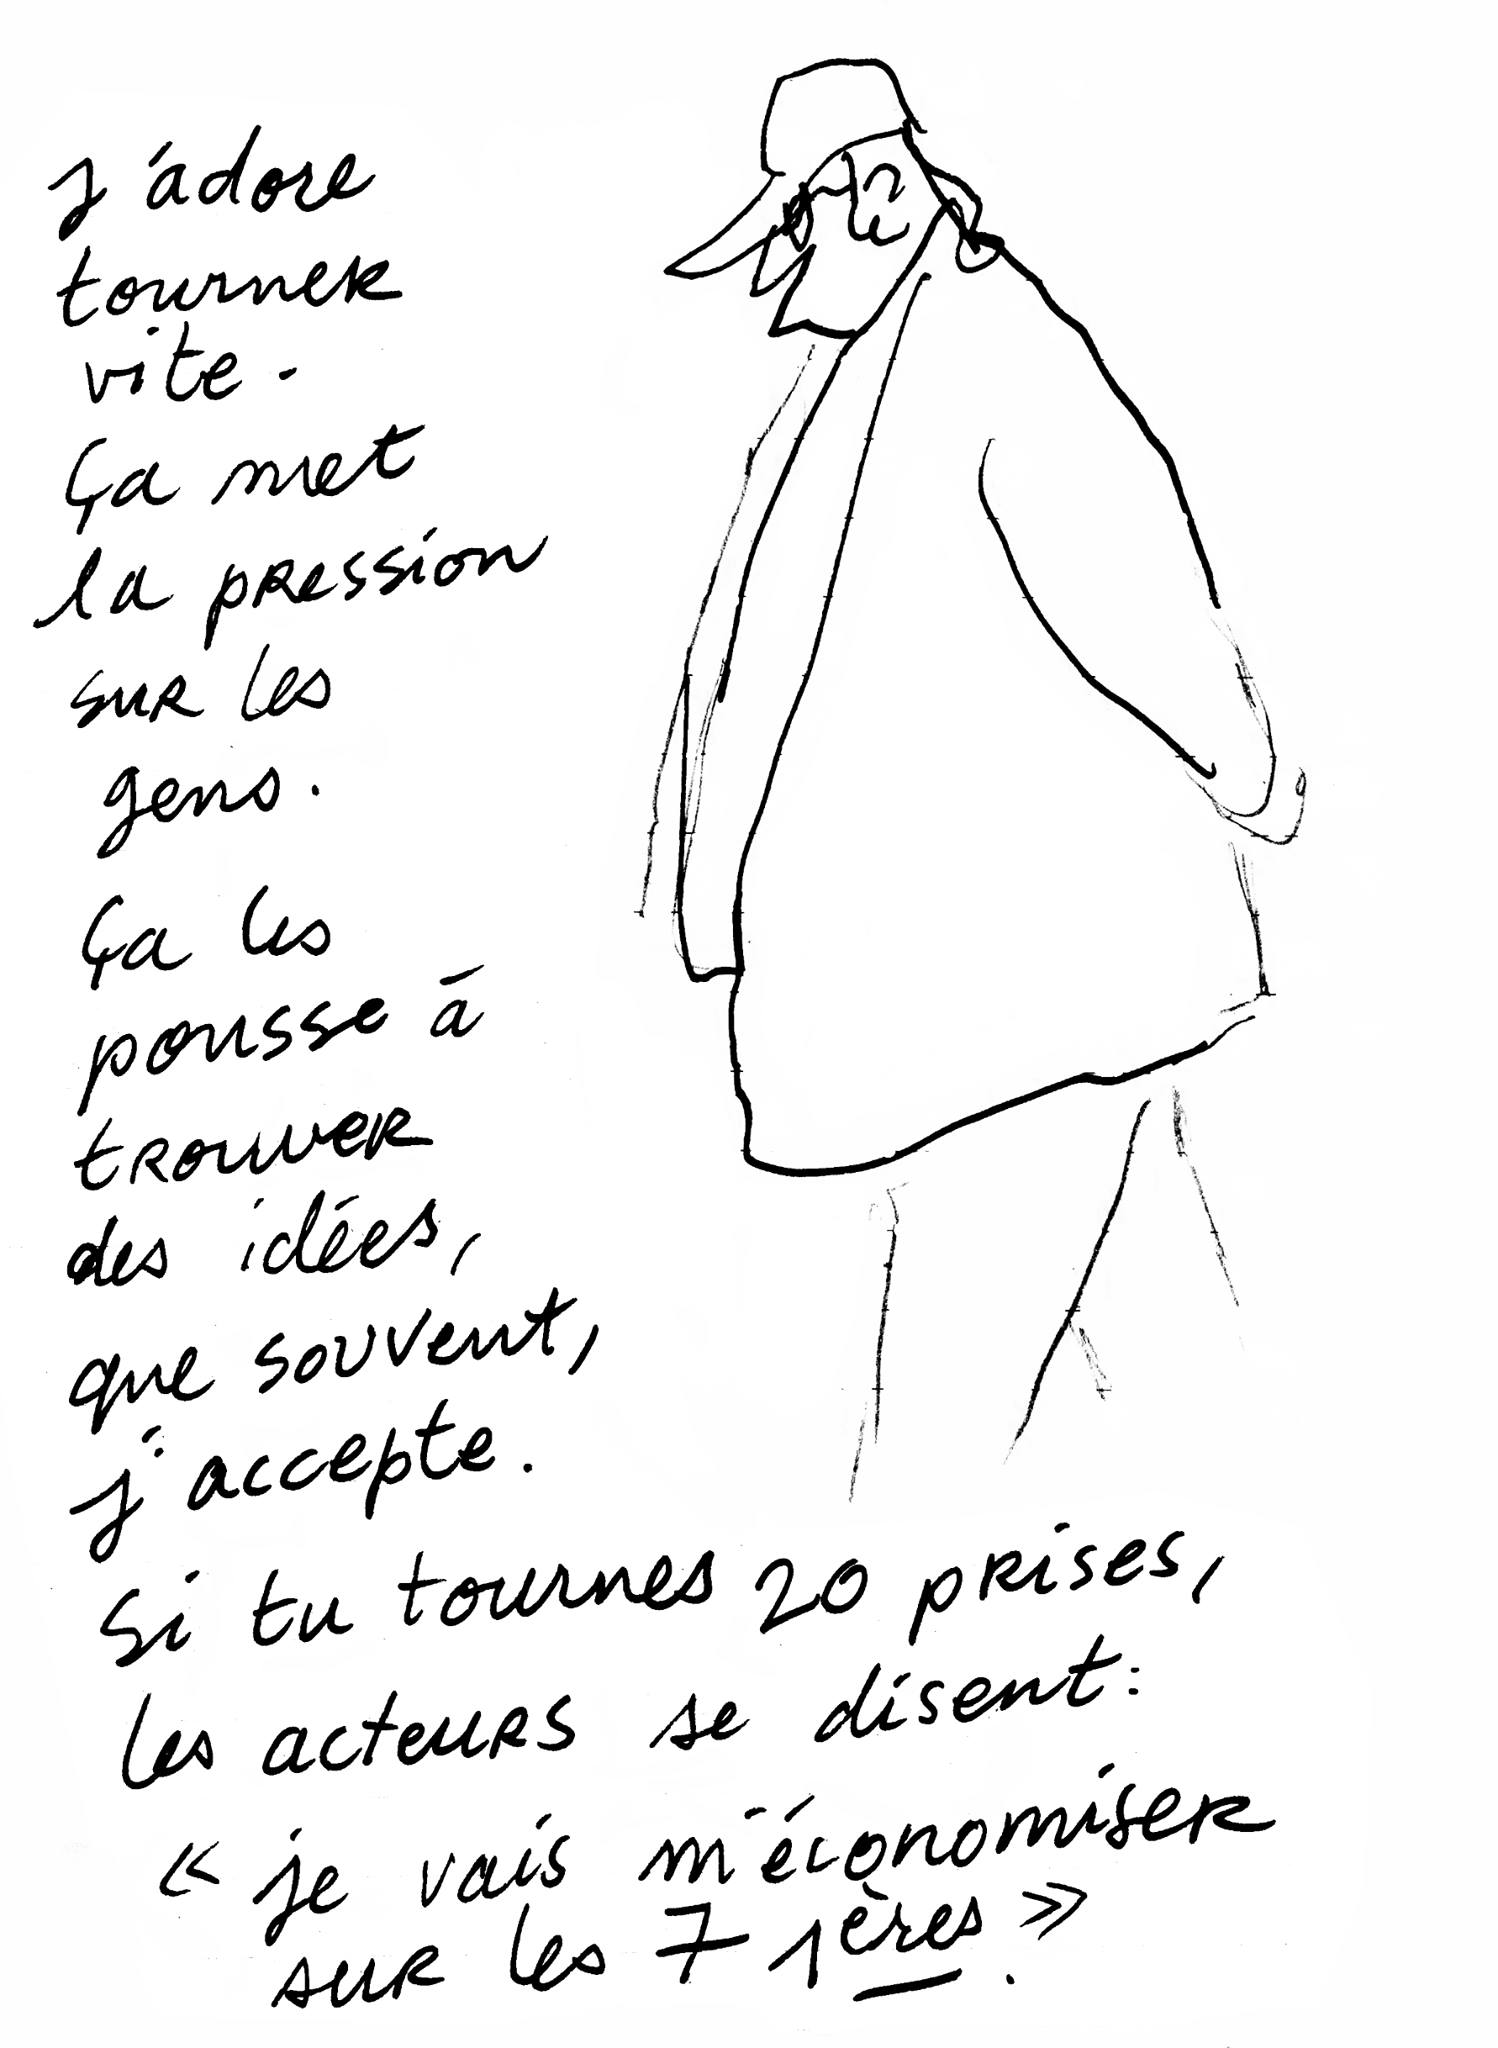 J'adore
tourner
vite.
Ça met
la pression
sur les
gens.
Ça les
pousse à
trouver
des idées,
que souvent,
j'accepte.
Si tu tournes 20 prises,
les acteurs se disent:
« je vais m'économiser
sur les 7 1ères ».